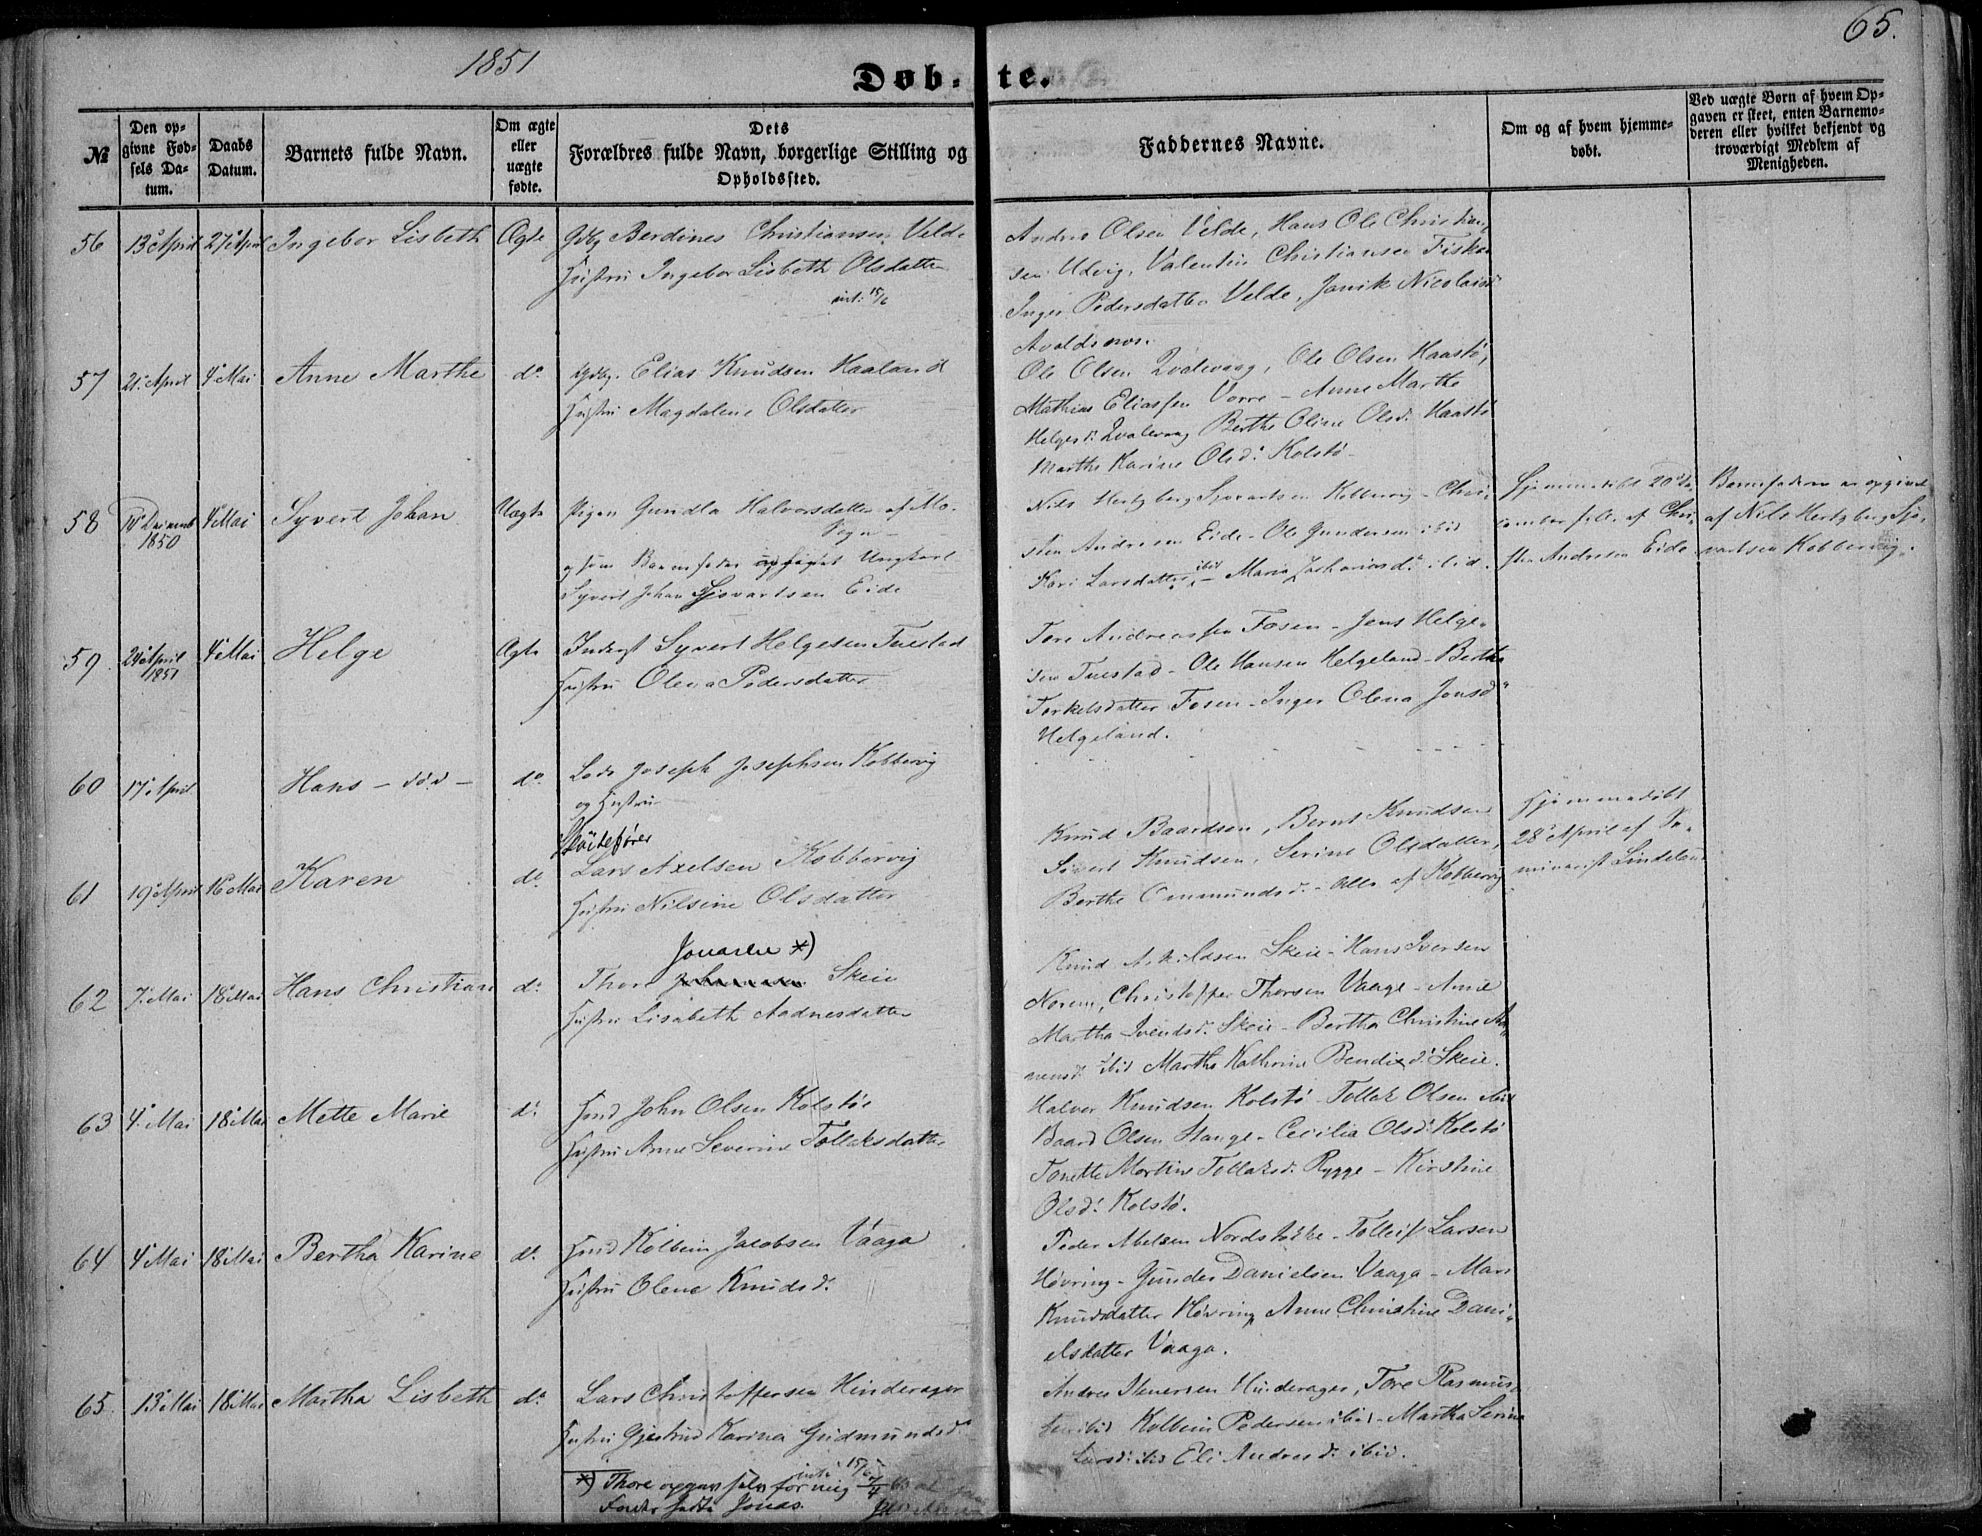 1851
65.
Døb-te.
№
Den op-
givne Fød-
sels Da-
tum.
Daabs
Datum.
Barnets fulde Navn.
Om ægte
eller
uægte
fødte.
Dets
Forældres fulde Navn, borgerlige Stilling og
Opholdssted.
Faddernes Navne.
Om og af hvem hjemme-
døbt.
Ved uægte Børn af hvem Op-
gaven er skeet, enten Barnemo-
deren eller hvilket bekjendt og
troværdigt Medlem af
Menigheden.
56 13 April 27 April Ingebor Lisbeth Ægte Gdbg Berdines Christiansen Velde
Hustru Ingebor Lisbeth Olsdatter
int. 15/6
Andres Olsen Velde, Hans Ole Christian
sen Udvig, Valentin Christiansen Fiskaa
Inger Pedersdatter Velde, Janik Nicolaisd
Avaldsnes.
57 21 April 4 Mai Anne Marthe do Gdbg. Elias Knudsen Haaland
Hustru Magdalene Olsdatter
Ole Olsen Qvalevaag, Ole Olsen Haastø,
Mathias Eliassen Vorre - Anne Marthe
Helgesd. Qvalevaag Berthe Oline Olsd. Haastø
Marthe Karine Olsd. Kolstø
58 Decemb 1850 4 Mai Syvert Johan Uægte Pigen Gundla Halvorsdatter af Mo-
Sogn -
og som Barnefader opgivet Ungkarl
Syvert Johan Sjovartsen Eide
Nils Hertzberg Sjovartsen Kobbervig - Chri-
sten Andresen Eide - Ole Gundersen ibid
Kari Larsdatter ibid - Marie Zachariasd. ibid.
Hjemmedøbt 20 De
cember af Chri-
sten Andresen Eide
Barnefaderen er opgivet
af Nils Hertzberg Sjo-
vartsen Kobbervig.
59. 24 April 1851 4 Mai Helge Ægte Inderst Syvert Helgesen Tuestad
Hustru Olena Pedersdatter
Tore Andreassen Fosen - Jens Helge-
sen Tuestad - Ole Hansen Helgeland - Berthe
Torkelsdatter Fosen - Inger Olena Jonsd
Helgeland.
60 17 April Hans - død - do Lods Joseph Josephsen Kobbervig
og Hustru
61 19 April 16 Mai Karen do Skøitefører
Lars Axelsen Kobbervig
Hustru Nilsine Olsdatter
Knud Baardsen, Bernt Knudsen
Sivert Knudsen, Serine Olsdatter,
Berthe Ommundsd. - alle af Kobbervig
Hjemmedøbt
28 April af Se-
minarist Lindeland
62 7 Mai 18 Mai Hans Christian do Jonassen *)
Thore Skeie
Hustru Lisabeth Aadnesdatter
Knud Askildsen Skeie - Hans Iversen
Norem, Christoffer Thorsen Vaage - Anne
Martha Svendsd. Skeie - Bertha Christine
ibid Marthe Kathrine Bendixd. Skeie.
63 4 Mai 18 Mai Mette Marie do John Olsen Kolstø
Hustru Anne Severine Tollaksdatter
Halvor Knudsen Kolstø - Tollak Olsen ibid
Baard Olsen Stange - Cecilia Olsd. Kolstø
Tonette Martine Tollaksd. Rygge - Kirstine
Olsd. Kolstø.
64 4 Mai 18 Mai Bertha Karine do Kolbein Jacobsen Vaaga
Hustru Olene Knudsd.
Peder Abelsen Nordstokke - Tolleif Larsen
Høvring - Gunder Danielsen Vaaga - Mari
Knudsdatter Høvring, Anne Christine Dani-
elsdatter Vaaga.
65. 13 Mai 18 Mai Martha Lisbeth do Lars Christoffersen Hinderager
Hustru Gjertrud Karina Gudmundsd
Andres Iversen Hinderager, Tore Rasmus-
sen ibid Kolbein Pedersen ibid - Martha Serine
Larsd. ibid Eli Andresd. ibid.
int. 15/6
*) Thore opgav selv for mig 7/4 65 at
Fader hedte Jonas.